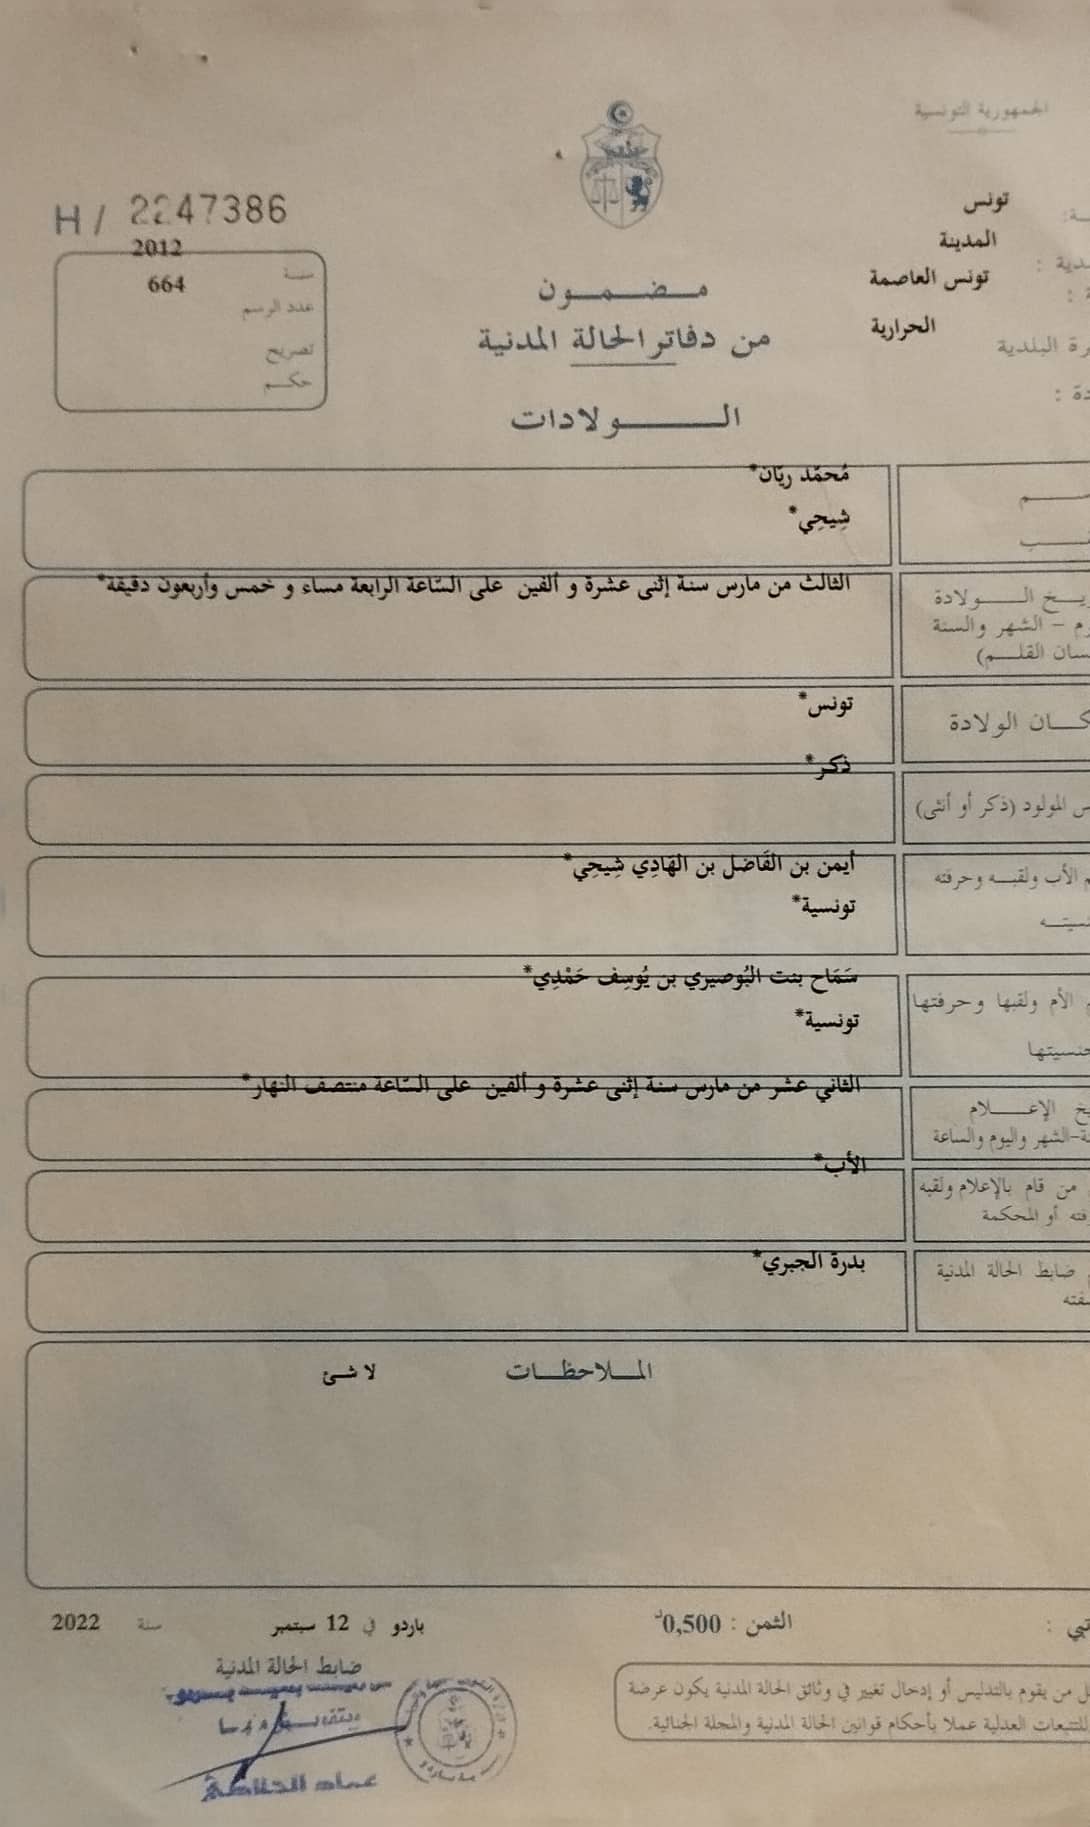 الجمهورية التونسية
H / 2247386
تونس
المدينة
تونس العاصمة
الحرارية
رة البلدية
2012
سنة
664
عدد الرسم
تصريح
حكم
مضمون
من دفاتر الحالة المدنية
الولادات
مُحمّد ريّان*
شِيحِي*
الولادة
الثالث من مارس سنة إثنى عشرة و ألفين على السّاعة الرابعة مساء و خمس وأربعون دقيقة*
– الشهر والسنة
القلم)
كان الولادة
تونس*
ذكر*
س المولود (ذكر أو أنثى)
م الأب ولقبه وحرفته
أيمن بن الفَاضل بن الهَادِي شِيحِي*
تونسية*
الأم ولقبها وحرفتها
سَمَاح بنت البُوصيري بن يُوسِف حَمْدِي*
جنسيتها
تونسية*
خ الإعلام
الثاني عشر من مارس سنة إثنى عشرة و ألفين على السّاعة منتصف النهار*
ة-الشهر واليوم والساعة
الأب*
من قام بالإعلام ولقبه
فته أو المحكمة
ضابط الحالة المدنية
بدرة الجبري*
الملاحظات
لا شئ
الثمن : 0,500د
باردو في 12 سبتمبر سنة 2022
ضابط الحالة المدنية
ل من يقوم بالتدليس أو إدخال تغيير في وثائق الحالة المدنية يكون عرضة
للتتبعات العدلية عملا بأحكام قوانين الحالة المدنية والمجلة الجنائية.
عماد